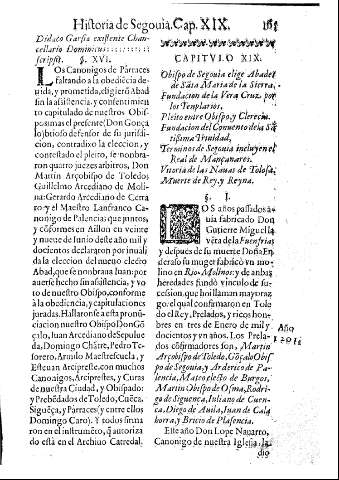 Historia de Segouia. Cap. XIX.
Didaco Garsia existente Chan-
cellario Dominicus
scripsit. §. XVI.
LOs Canonigos de Párraces
faltando a la obediécia de-
uida, y prometida, eligieró Abad
sin la asistencia, y consentimien
to capitulado de nuestros Obis-
pos: mas el presente (Don Gonça
lo) brioso defensor de su jurisdi-
cion, contradixo la eleccion, y
contestado el pleito, se nombra-
ron quatro juezes arbitros, Don
Martin Arçobispo de Toledo:
Guillelmo Arcediano de Molina:
Gerardo Arcediano de Cerra
to: y el Maestro Lanfranco Ca-
nonigo de Palencia: que juntos, y
cóformes en Aillon en veinte
y nueue de Iunio deste año mil y
docientos declararon por inuali
da la eleccion del nueuo electo
Abad, que se nombraua Iuan: por
auerse hecho sin asistencia, y vo
to de nuestro Obispo, conforme
à la obediencia, y capitulaciones
juradas. Hallaronse a esta pronú
ciacion nuestro Obispo Don Gó
çalo, Iuan Arcediano de Sepulue
da, Domingo Cháire, Pedro Te-
sorero, Arnulo Maestrescuela, y
Esteuan Arcipreste, con muchos
Canonigos, Arciprestes, y Curas
de nuestra Ciudad, y Obispado:
y Prebédados de Toledo, Cuéca,
Siguéça, y Párraces (y entre ellos
Domingo Caro). Y todos firma
ron en el instruméto, q̃ autoriza
do está en el Archiuo Catredal.
CAPITVLO XIX.
Obispo de Segouia elige Abades
de Sáta Maria de la Sierra.
Fundacion de la Vera Cruz por
los Templarios.
Pleito entre Obispo, y Clerecia.
Fundacion del Conuento de la Sá
tisima Trinidad,
Terminos de Segouia incluyen el
Real de Mançanares.
Vitoria de las Nauas de Tolosa.
Muerte de Rey, y Reyna.
§. I.
LOS años pasados a-
uia fabricado Don
Gutierre Miguel la
véta de la Fuenfria
y despues de su muerte Doña En
derasó su muger fabricó vn mo
lino en Rio-Molinos: y de anbas
heredades fundó vinculo de su-
cesion, que hoi llaman mayoraz
go, el qual confirmaron en Tole
do el Rey, Prelados, y ricos hon
bres en tres de Enero de mil y
docientos y vn años. Los Prela-
dos cófirmadores son, Martin
Arçobispo de Toledo. Góçalo Obis
po de Segouia, y Arderico de Pa-
lencia, Mateo electo de Burgos,
Martin Obispo de Osma, Rodri-
go de Siguença, Iuliano de Cuen-
ca, Diego de Auila, Iuan de Cala
horra, y Bricio de Plasencia.
Este año Don Lope Nauarro,
Canonigo de nuestra Iglesia, la-
dio
Año